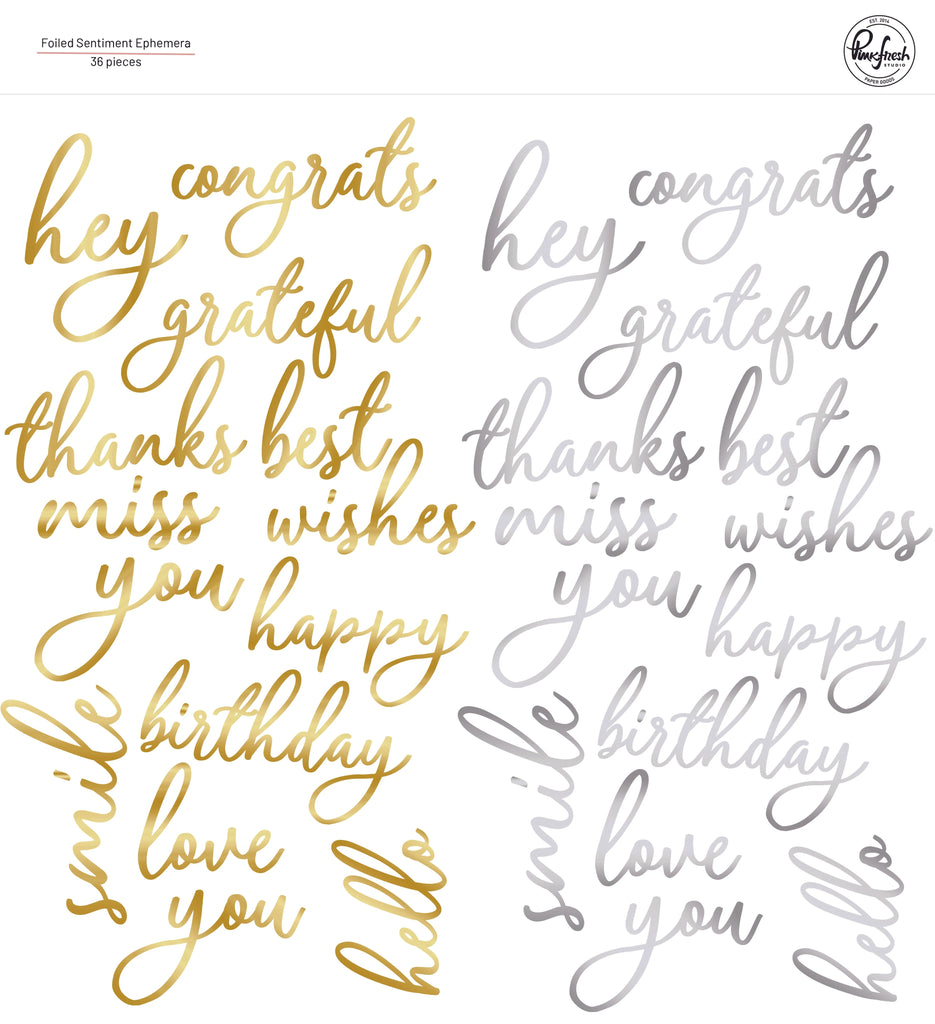 Foiled Sentiment Ephemera
36 pieces
EST. 2014
Pinkfresh
STUDIO
PAPER GOODS
hey
congrats
grateful
thanks
best
wishes
miss
you
happy
birthday
smile
love
you
hello
hey
congrats
grateful
thanks
best
wishes
miss
you
happy
birthday
smile
love
you
hello